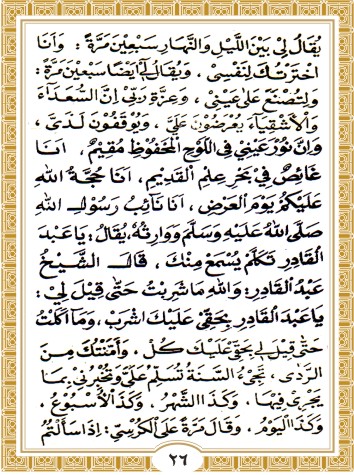 يُقَالُ لِي بَيْنَ اللَّيْلِ وَالنَّهَارِ سَبْعِيْنَ مَرَّةً ، وَأَنَا
اخْتَرْتُكَ لِنَفْسِي ، وَيُقَالُ لِي أَيْضًا سَبْعِيْنَ مَرَّةً :
وَلِتُصْنَعَ عَلَى عَيْنِي ، وَعِزَّةِ رَبِّي إِنَّ السُّعَدَاءَ
وَالْأَشْقِيَاءَ يُعْرَضُوْنَ عَلَيَّ ، وَيُوْقَفُوْنَ لَدَىَّ ،
وَإِنَّ نُوْرَ عَيْنِي فِي اللَّوْحِ الْمَحْفُوْظِ مُقِيْمٌ ، أَنَا
غَائِصٌ فِي بَحْرِ عِلْمِ الْقَدِيْمِ ، أَنَا حُجَّةُ اللهِ
عَلَيْكُمْ يَوْمَ الْعَرْضِ ، أَنَا نَائِبُ رَسُوْلِ اللهِ
صَلَّى اللهُ عَلَيْهِ وَسَلَّمَ وَوَارِثُهُ ، يُقَالُ : يَا عَبْدَ
الْقَادِرِ تَكَلَّمْ يُسْمَعْ مِنْكَ ، قَالَ الشَّيْخُ
عَبْدُ الْقَادِرِ : وَاللهِ مَا شَرِبْتُ حَتَّى قِيْلَ لِيْ :
يَا عَبْدَ الْقَادِرِ بِحَقِّي عَلَيْكَ اشْرَبْ ، وَمَا أَكَلْتُ
حَتَّى قِيْلَ لِي بِحَقِّي عَلَيْكَ كُلْ ، وَأَمَّنْتُكَ مِنَ
الرَّدٰى ، تَجِيْءُ السَّنَةُ تُسَلِّمُ عَلَيَّ وَتُخْبِرُنِي بِمَا
يَجْرِيْ فِيْهَا ، وَكَذَا الشَّهْرُ ، وَكَذَا الْأُسْبُوْعُ ،
وَكَذَا الْيَوْمُ ، وَقَالَ مَرَّةً عَلَى الْكُرْسِيِّ : إِذَا سَأَلْتُمُ
٢٦